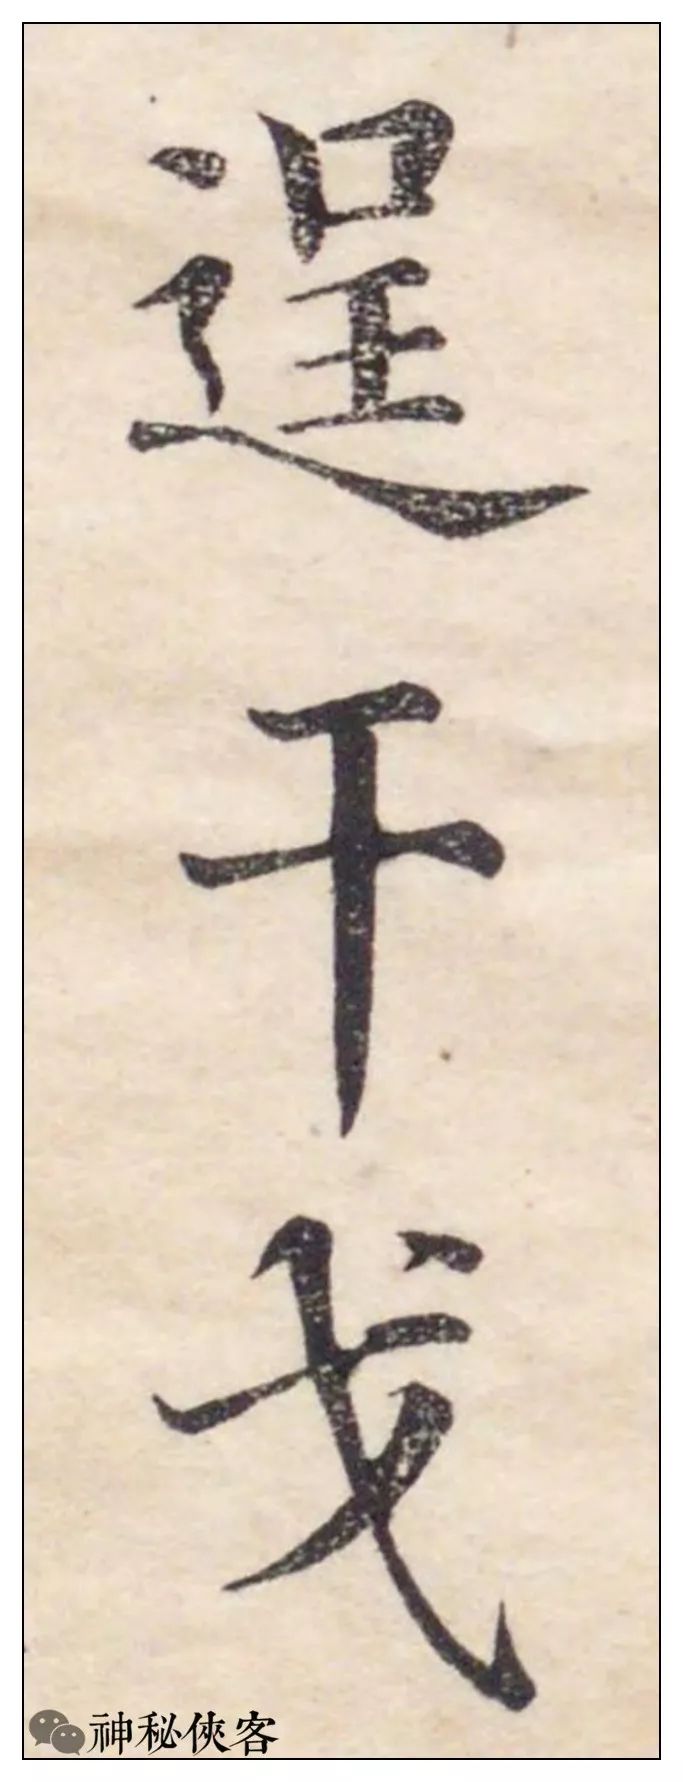 逞干戈
神秘俠客